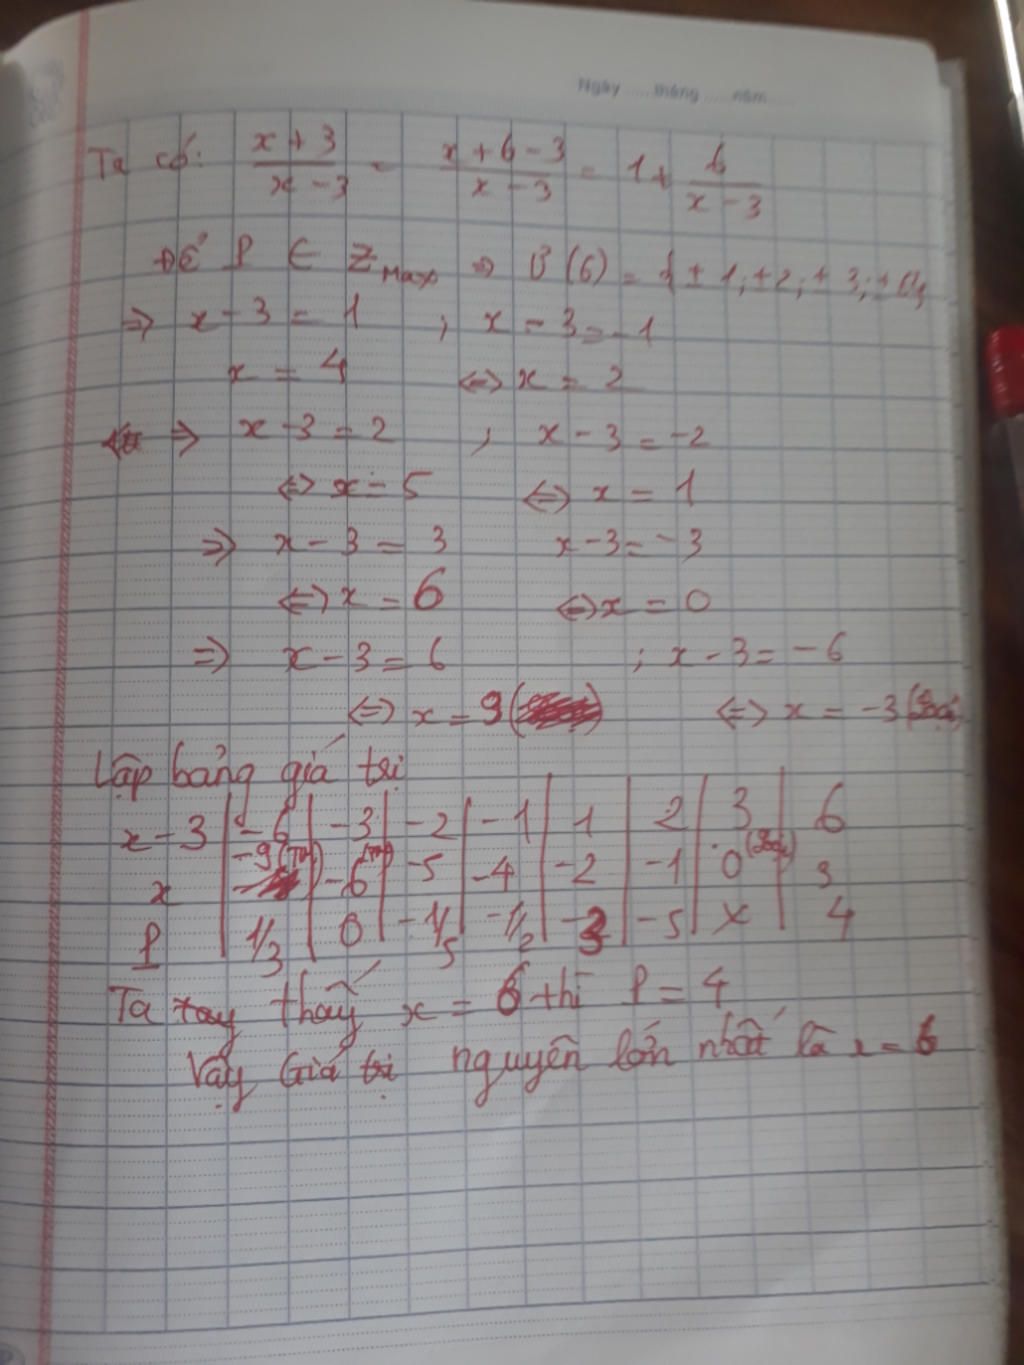 Ngày ..... tháng ..... năm .....
Ta có: x + 3 / x - 3 = x + 6 - 3 / x - 3 = 1 + 6 / x - 3
Để P ∈ Z Max ⇒ Ư(6) = { ± 1; ± 2; ± 3; ± 6}
⇒ x - 3 = 1 ; x - 3 = -1
x = 4 ⇔ x = 2
⇒ x - 3 = 2 ; x - 3 = -2
⇔ x = 5 ⇔ x = 1
⇒ x - 3 = 3 x - 3 = -3
⇔ x = 6 ⇔ x = 0
⇒ x - 3 = 6 ; x - 3 = -6
⇔ x = 9 ( ) ⇔ x = -3 (Loại)
Lập bảng giá trị
x - 3 | -6 | -3 | -2 | -1 | 1 | 2 | 3 | 6
x | -9 (TM) | -6 (TM) | -5 | -4 | -2 | -1 | 0 (Loại) | 3
P | 1/3 | 0 | -1/5 | -1/2 | -3 | -5 | X | 4
Ta tay thấy x = 6 thì P = 4
Vậy Giá trị nguyên lớn nhất là x = 6